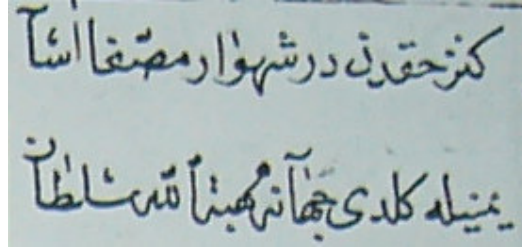 كنز حقدن در شهوار مصفا اسا
يمنيله كلدى جهانه هبة الله سلطان